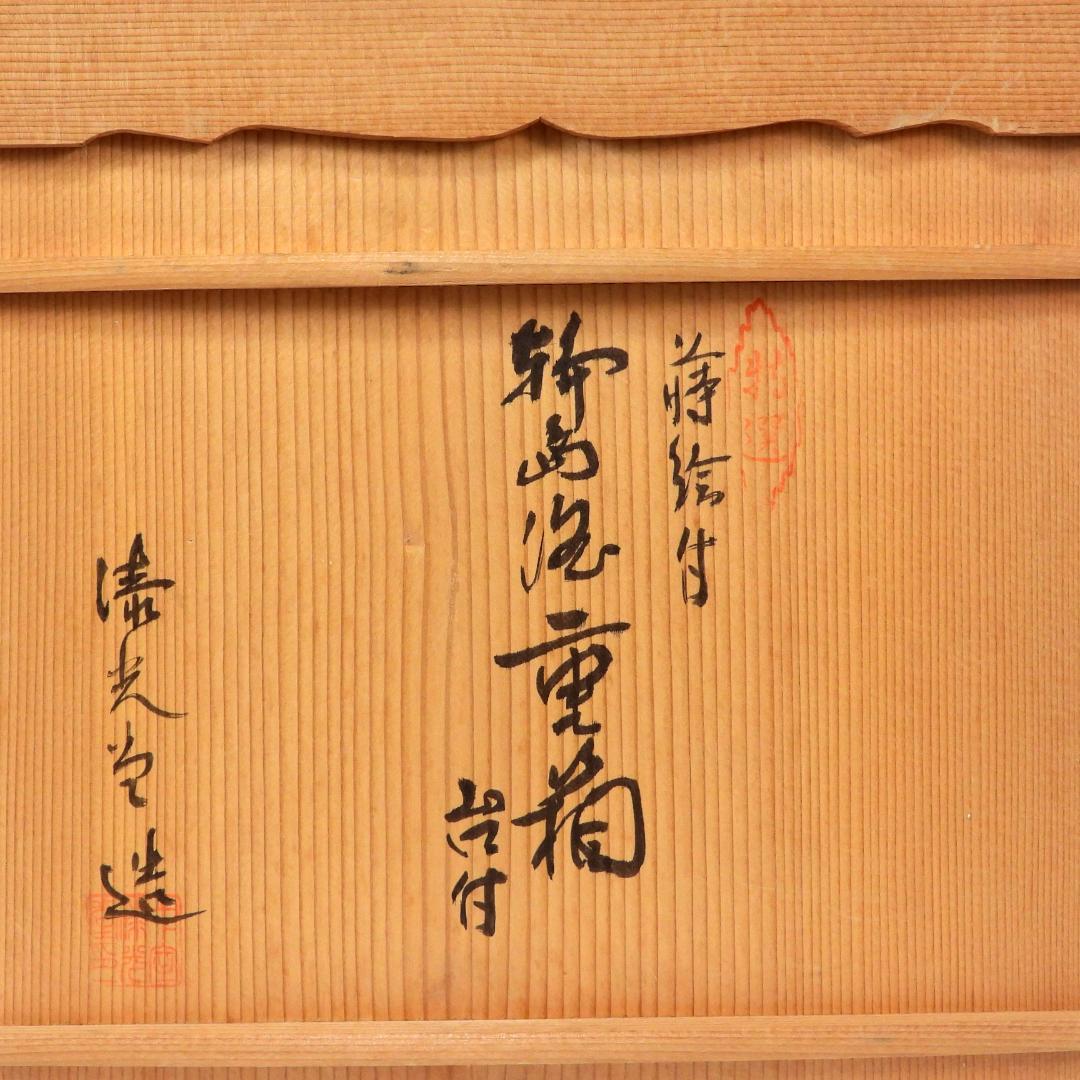 特選
蒔絵付
輪島塗重箱
台付
漆光堂造